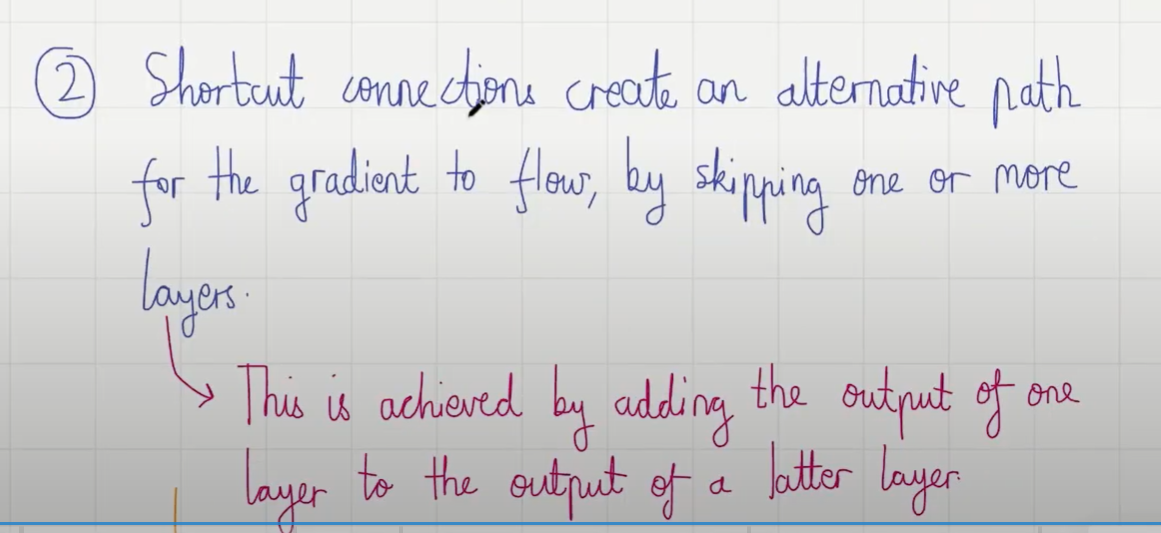 ② Shortcut connections create an alternative path
for the gradient to flow, by skipping one or more
layers.
This is achieved by adding the output of one
layer to the output of a latter layer.